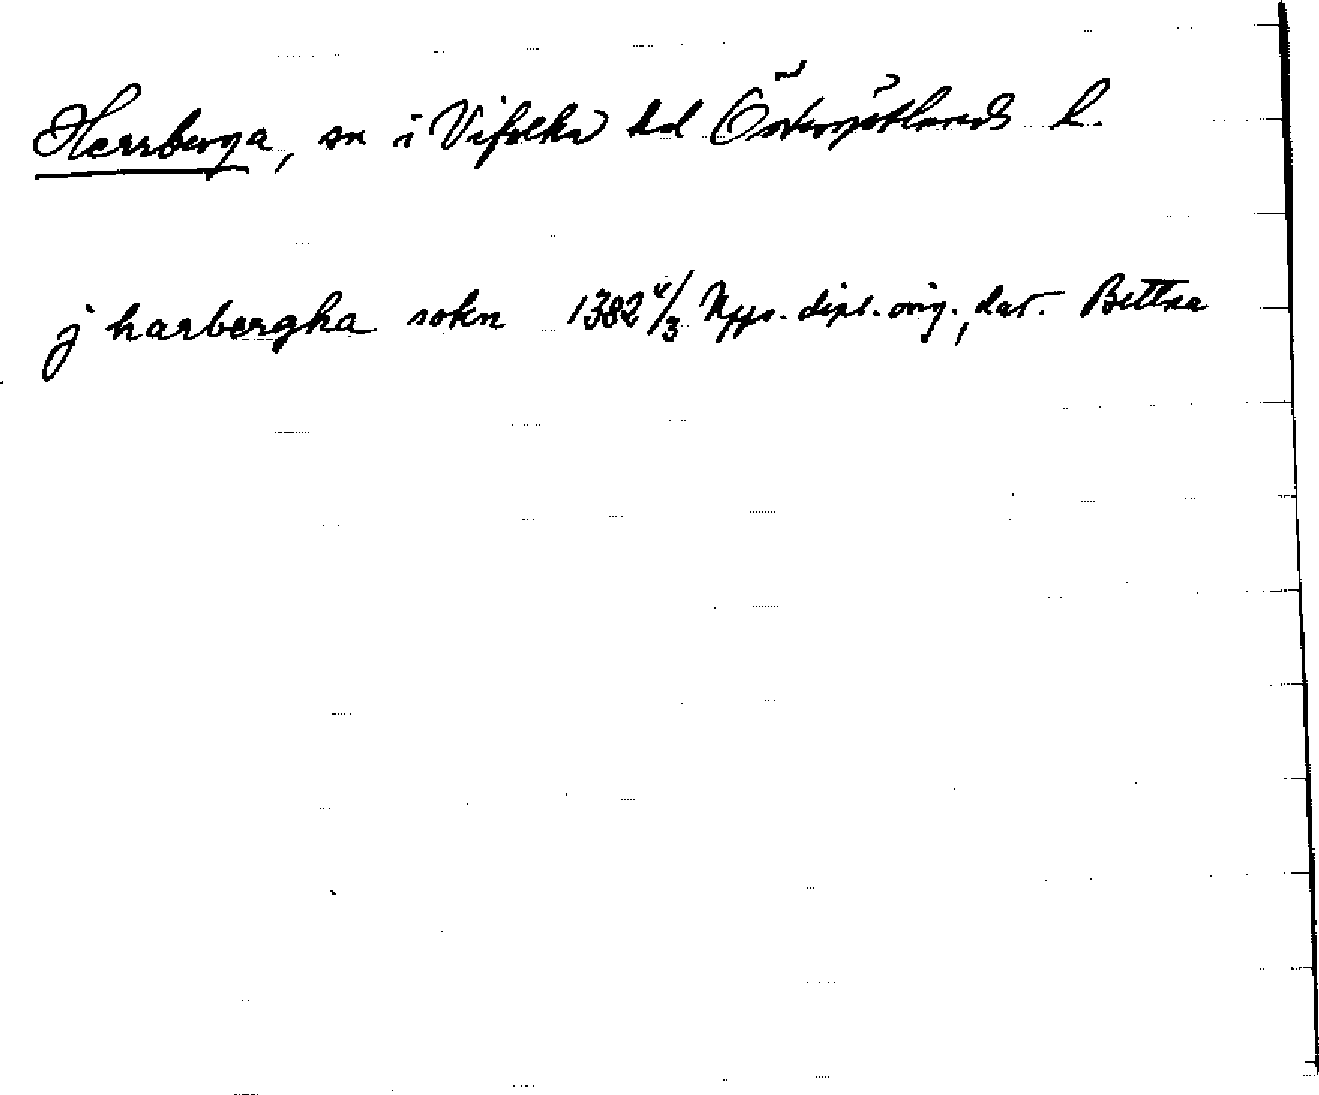 Herrberga, sn i Vifolka hd Östergötlands l.
j harbergha sokn 1382 4/3 Upps. dipl. orig., dat. Bettna